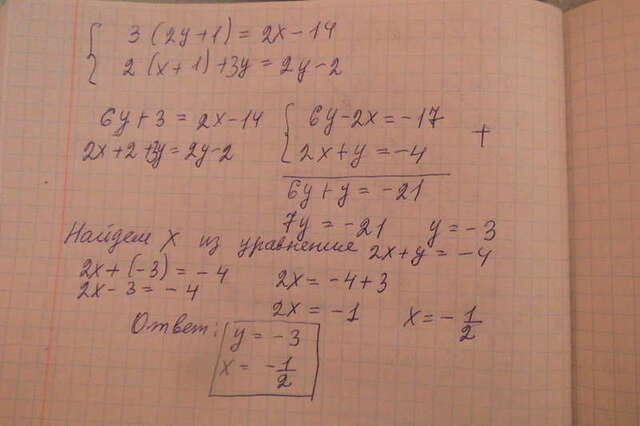 3(2y+1)=2x-14
2(x+1)+3y=2y-2
6y+3=2x-14
2x+2+3y=2y-2
6y-2x=-17
2x+y=-4
+
6y+y=-21
7y=-21 y=-3
Найдем x из уравнение 2x+y=-4
2x+(-3)=-4 2x=-4+3
2x-3=-4
2x=-1 x=-1/2
Ответ: y=-3
x=-1/2